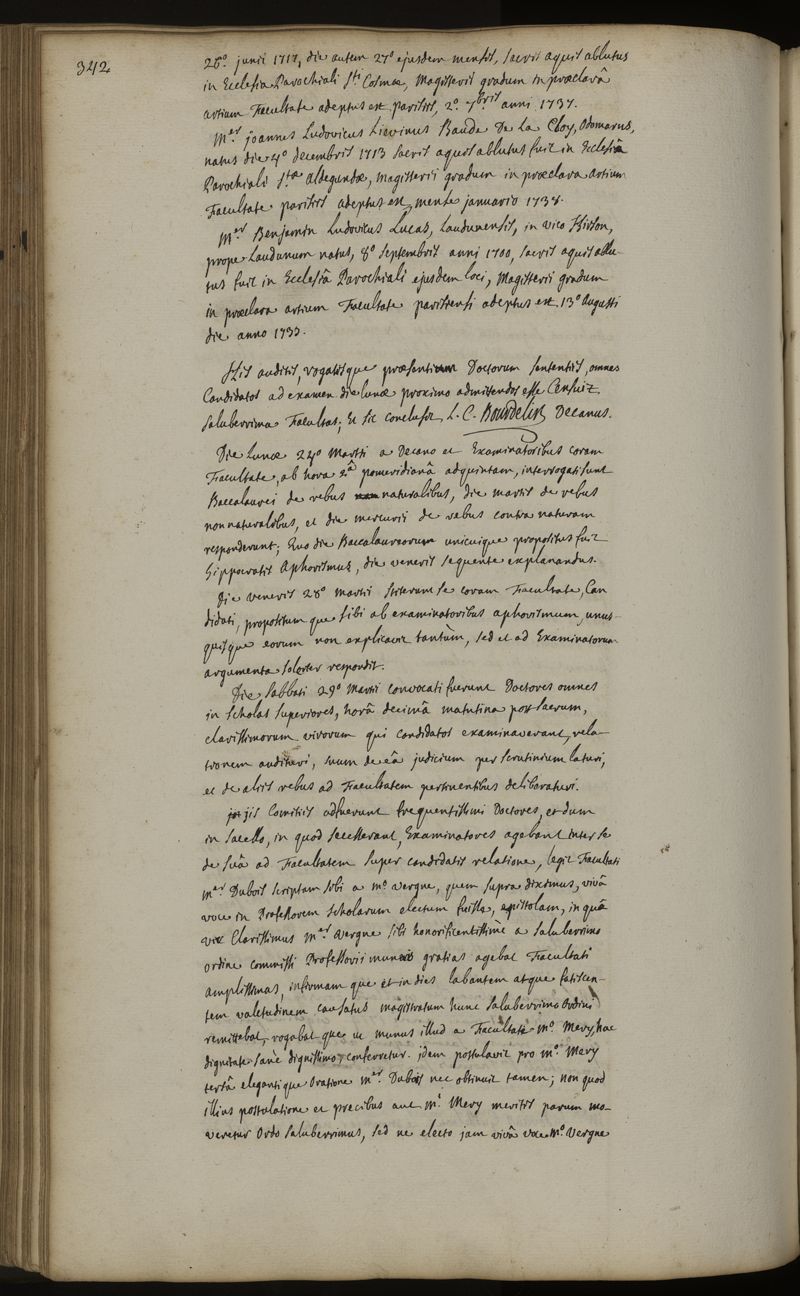 342
26º. junii 1717, die autem 27º ejusdem mensis, sacris aquis ablutus
in Ecclesia Parochiali Sti Cosmæ, Magisterii gradum in præclarâ
artium Facultate adeptus est parisiis, 2º. 7bris anni 1737.
Mer. joannes Ludovicus Liewinus Baude De La Cloy, Odomarus,
natus die 4º decembris 1713 sacris aquis ablutus fuit in Ecclesiâ
Parochiali Stæ Aldegundæ, magisterii gradum in præclara artium
Facultate parisiis adeptus est, mense januario 1738.
Mer Benjamin Ludovicus Lucas, Laudunensis, in vico Hirson,
prope Laudunum natus, 8º septembris anni 1700, sacris aquis ablu-
tus fuit in Ecclesiâ Parochiali ejusdem loci, Magisterii gradum
in præclara artium Facultate parisiensi adeptus est, 13º Augusti
die anno 1733.
His auditis, rogatisque præsentium Doctorum sententiis, omnes
Candidatos ad examen die lunæ proximo admittendos esse Censuit
Saluberrima Facultas; Et sic conclusit L. C. Bourdelin Decanus.
Die Lunæ 24º Martii a Decano et Examinatoribus coram
Facultate, ab hora 2â pomeridianâ ad quintam, interrogati sunt
Baccalaurei de rebus naturalibus, die martis de rebus
non naturalibus, et die mercurii de rebus contra naturam
responderunt; Quo die Baccalaureorum unicuique propositus fuit
Hippocratis Aphorismus, die veneris sequente explanandus.
Die veneris 28º Martii stiterunt se coram Facultate, Can
didati, propositum que sibi ab examinatoribus aphorismum, unus-
quisque eorum non explicavit tantùm, sed et ad Examinatorum
argumenta solerter respondit.
Die Sabbati 29º Martii convocati fuerunt Doctores omnes
in scholas superiores, horâ decimâ matutina post sacrum,
clarissimorum virorum qui candidatos examinaverant, rela-
tionem audituri, suum de eâ judicium per scrutinium laturi,
et de aliis rebus ad Facultatem pertinentibus deliberaturi.
jis Comitiis adfuerunt frequentissimi Doctores, et dum
in sacello, in quod secesserant, Examinatores agebant inter se
de suâ ad Facultatem super candidatis relatione, legit Facultati
mer Dubois scriptam sibi a mº vergne, quem supra diximus, vivâ
voce in Professorem Scholarum electum fuisse, epistolam, in quâ
vir Clarissimus mer Vergne sibi honorificentissimè a Saluberrimo
ordine commissi Professorii muneris gratias agebat Facultati
amplissimas, infirmam que et in dies labantem atque fatiscen-
tem valetudinem causatus magistratum hunc saluberrimo Ordini
remittebat, rogabat que ut munus illud a Facultate Mº. Mery, hac
dignitate sane dignissimo, conferretur. jdem postulavit pro mº. Mery
tersâ eleganti que Oratione mer Dubois nec obtinuit tamen; non quod
illius postulatione et precibus aut mi. Mery meritis parum mo-
veretur Ordo saluberrimus, sed ne electo jam vivâ voce mº. Vergne